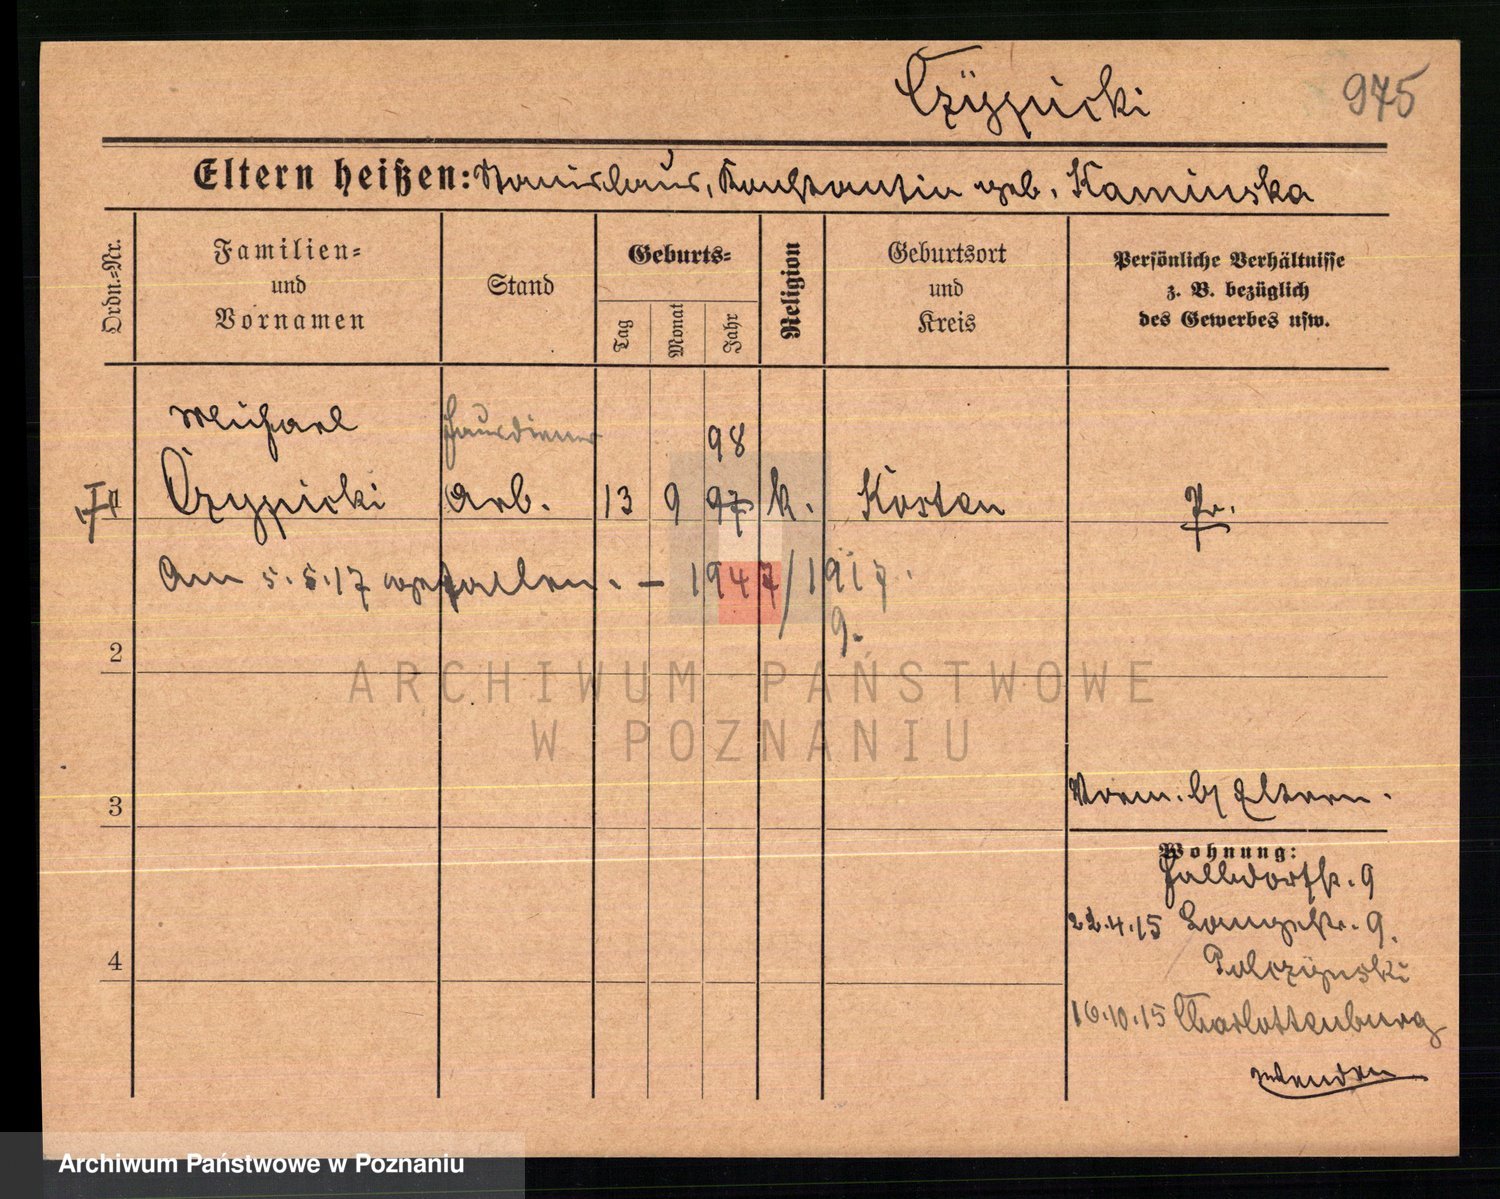 Czÿpicki
975
Eltern heißen: Stanislaus, Konstantin geb. Kaminska
Ordn.=Nr.
Familien=
und
Vornamen
Stand
Geburts=
Tag
Monat
Jahr
Religion
Geburtsort
und
Kreis
Persönliche Verhältnisse
z. B. bezüglich
des Gewerbes usw.
Michael Hausdiener 98
Czypicki Arb. 13 9 97 k. Kosten Pr.
Am 5.5.17 gefallen. – 1947/1917.
9.
2
3
4
Vorm. b/ Eltern.
Wohnung:
Halbdorfstr. 9
22.4.15 Langestr. 9.
Palczynski
16.10.15 Charlottenburg
wenden
ARCHIWUM PAŃSTWOWE
W POZNANIU
Archiwum Państwowe w Poznaniu